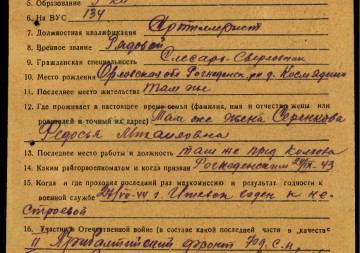 5. Образование 5 кл
6. На ВУС 134
7. Должностная квалификация Артиллерист
8. Военное звание Рядовой
9. Гражданская специальность Слесарь-Сверловщик
10. Место рождения Орловская об Рогнединск. рн д.
11. Последнее место жительства Там же
12. Где проживает в настоящее время семья (фамилия, имя и отчество жены или
родителей и точный их адрес) Там же жена
Федосья
13. Последнее место работы и должность там же пред колхоза
14. Каким райгорвоенкоматом и когда призван Рогнединским 43
15. Когда и где проходил последний раз медкомиссию и результат годности к
военной службе 44 г. годен к не-
строевой
16. Участие в Отечественной войне (в составе какой последней части в качестве
II Прибалтийский фронт